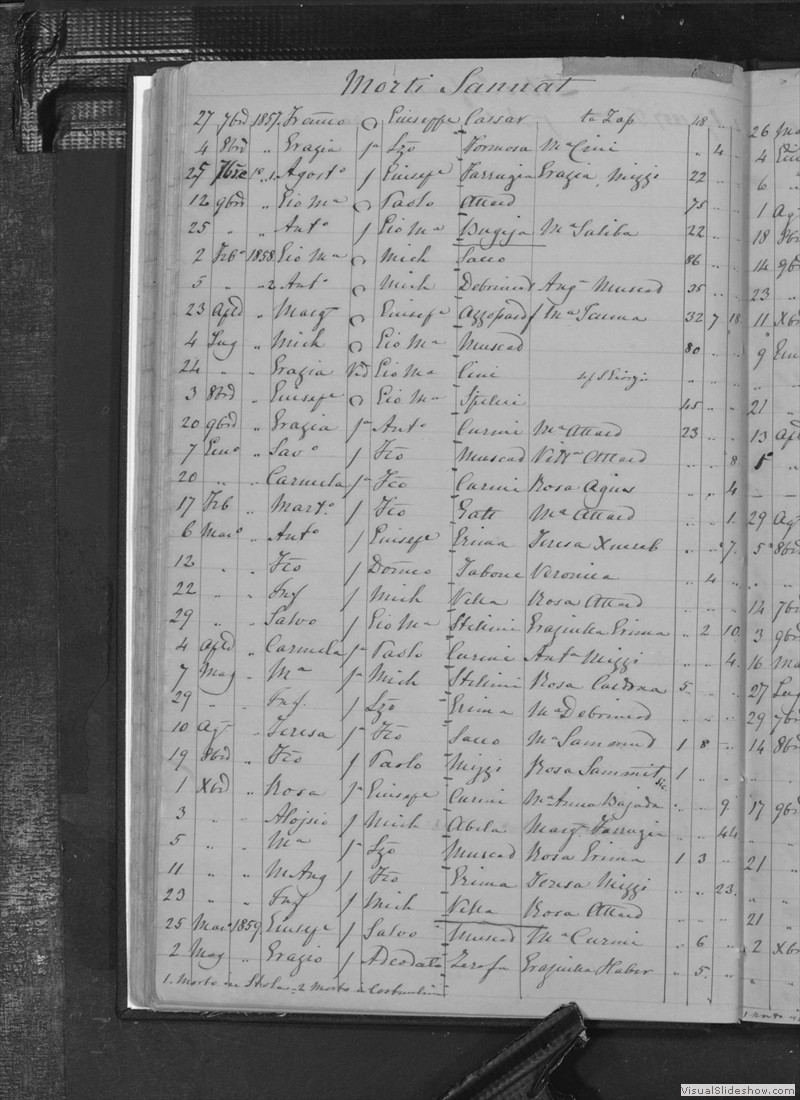 Morti Sannat
27 7brē 1857. Franco Giuseppe Cassar ta Zap 48 ..
4 8brē .. Grazia fa Lzo Formosa Ma Cini .. 4 ..
25 7bre 1o..1. Agosto f Giusepe Farrugia Grazia Mizzi 22 .. ..
12 9brē .. Gio Ma Paolo Attard 75 .. ..
25 .. .. Anto f Gio Ma Bugeja Ma Saliba 22 .. ..
2 Febo 1858 Gio Ma Mich Sacco 86 .. ..
5 .. ..2 Anto Mich Debrincat Ang Muscat 35 .. ..
23 Aprē .. Marga Giusepe Azzopardi Ma 32 7 18.
4 Lug .. Mich Gio Ma Muscat 80 .. ..
24 .. .. Grazia Ved Gio Ma Cini
3 8brē .. Giusepe Gio Ma Spiteri 45 .. ..
20 9brē .. Grazia fa Anto Curmi Ma Attard 23 .. ..
7 .. Savo f Fco Muscat Attard .. .. 8
20 .. .. Carmela fa Fco Curmi Rosa Agius .. .. 4
17 Feb .. Marto f Fco Gatt Ma Attard .. .. 1.
6 Maro .. Anto f Giusepe Grima Teresa Xuereb .. .. 7.
12 .. .. Fco f Domco Tabone Veronica .. 4 ..
22 .. .. Inf f Mich Vella Rosa Attard .. .. ..
29 .. .. Salvo f Gio Ma Stellini Graziulla Grima .. 2 10.
4 Aprē .. Carmela fa Paolo Curmi Anta Mizzi .. .. 4.
7 Mag .. Ma fa Mich Stellini Rosa Cardona 5. .. ..
29 .. .. Inf. f Lzo Grima Ma Debrincat .. .. ..
10 Ago .. Teresa fa Fco Sacco Ma Sammut 1 8 ..
19 8brē .. Fco f Paolo Mizzi Rosa Sammut 1 .. ..
1 Xbrē .. Rosa fa Giusepe Curmi Ma Anna Bajada .. .. 9
3 .. .. Alojsio f Mich Abela Marga Farrugia .. .. 44
5 .. .. Ma fa Lzo Muscat Rosa Grima 1 3 ..
11 .. .. M Ang f Fco Grima Teresa Mizzi .. .. 23.
23 .. .. Inf f Mich Vella Rosa Attard .. .. ..
25 Maro 1859. Giusepe f Salvo Muscat Ma Curmi .. 6 ..
2 Mag .. Grazio f Adeodato Zerafa Graziulla Haber .. 5. ..
1. Morto 2 Morto a Costantin
26 Ma
4
6 ..
1 Ag
18 8br
14 9br
23 ..
11 Xb
9
21 ..
13 Ap
5
29 Ag
5 8br
14 7br
3 9br
16 Ma
27 Lug
29 7br
14 8br
17 9br
21 ..
21 ..
2 Xbr
VisualSlideshow.com